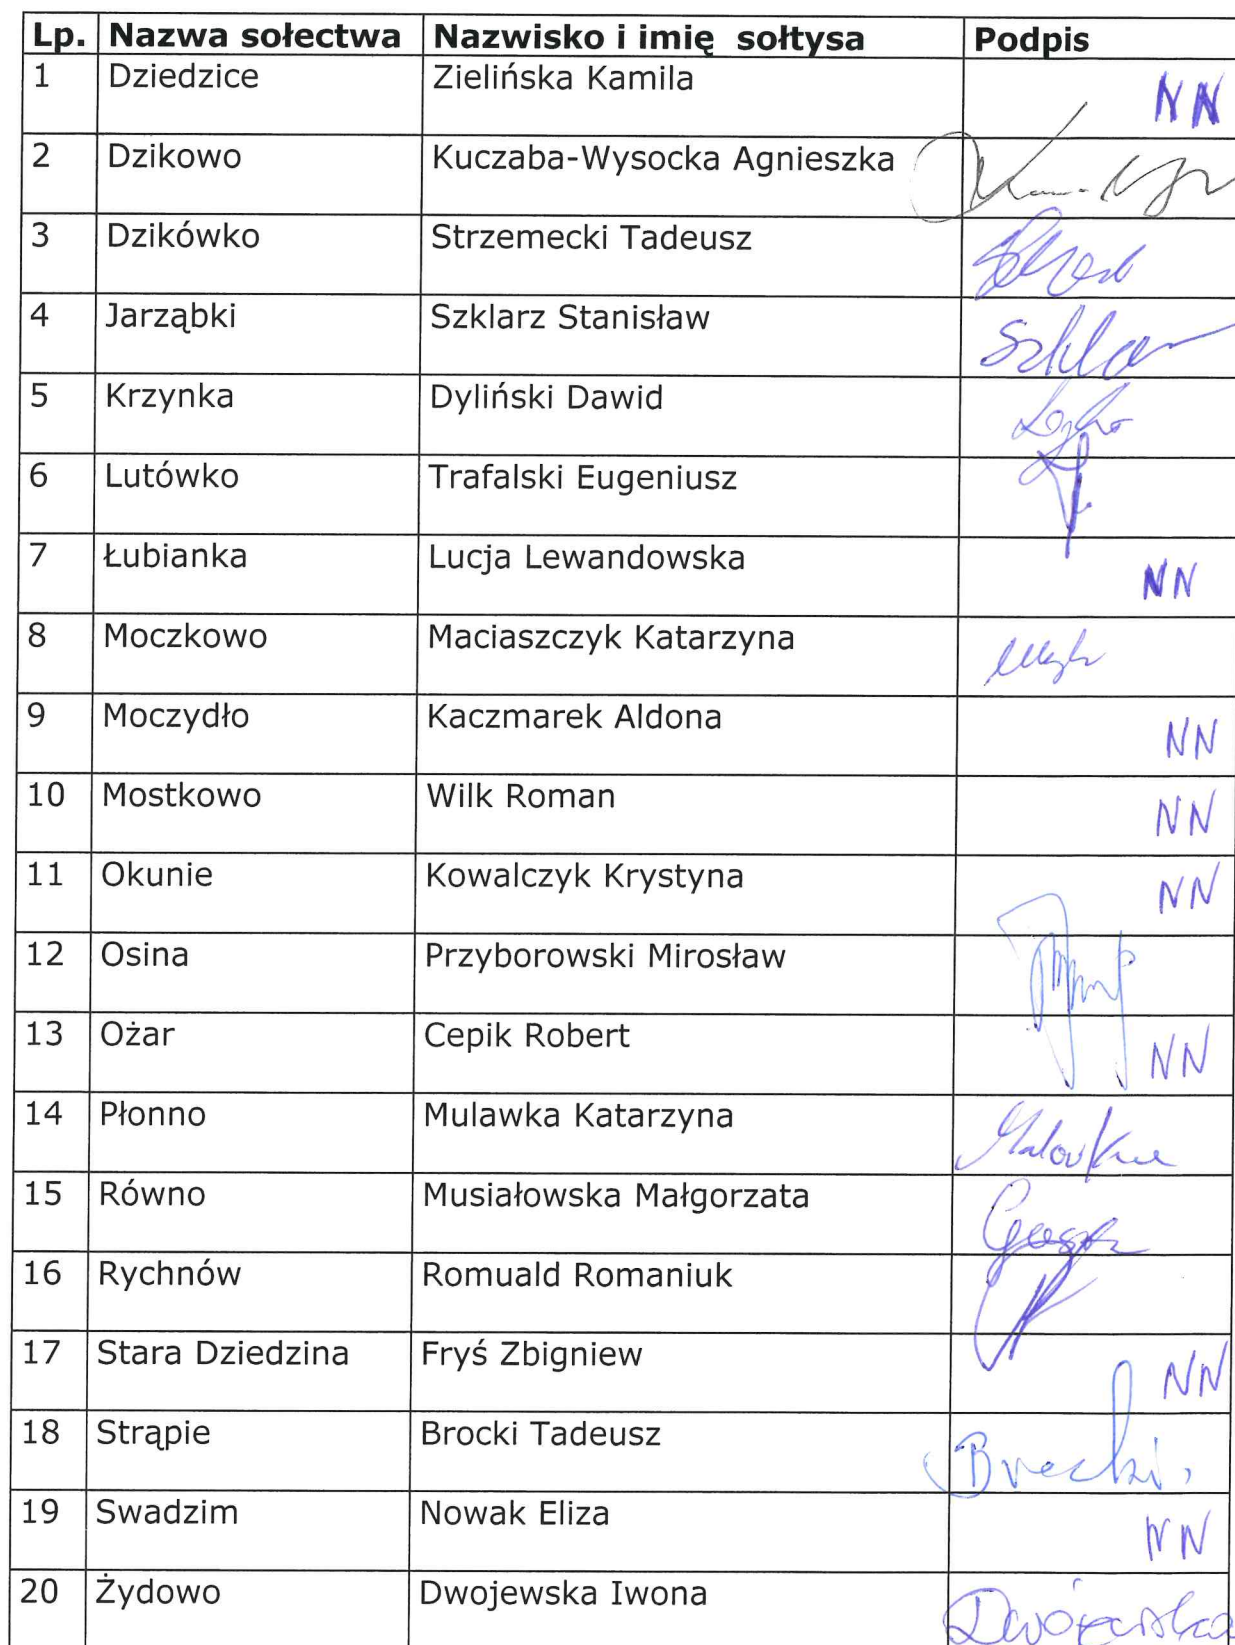 Lp. Nazwa sołectwa Nazwisko i imię sołtysa Podpis
1 Dziedzice Zielińska Kamila NN
2 Dzikowo Kuczaba-Wysocka Agnieszka
3 Dzikówko Strzemecki Tadeusz
4 Jarząbki Szklarz Stanisław Szklar
5 Krzynka Dyliński Dawid
6 Lutówko Trafalski Eugeniusz
7 Łubianka Lucja Lewandowska NN
8 Moczkowo Maciaszczyk Katarzyna
9 Moczydło Kaczmarek Aldona NN
10 Mostkowo Wilk Roman NN
11 Okunie Kowalczyk Krystyna NN
12 Osina Przyborowski Mirosław
13 Ożar Cepik Robert NN
14 Płonno Mulawka Katarzyna
15 Równo Musiałowska Małgorzata
16 Rychnów Romuald Romaniuk
17 Stara Dziedzina Fryś Zbigniew NN
18 Strąpie Brocki Tadeusz Brocki
19 Swadzim Nowak Eliza NN
20 Żydowo Dwojewska Iwona Dwojewska